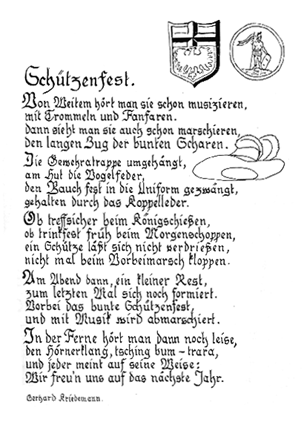 Schützenfest.
Von Weitem hört man sie schon musizieren,
mit Trommeln und Fanfaren.
dann sieht man sie auch schon marschieren,
den langen Zug der bunten Scharen.
Die Gewehratrappe umgehängt,
am Hut die Vogelfeder,
den Bauch fest in die Uniform gezwängt,
gehalten durch das Koppelleder.
Ob treffsicher beim Königschießen,
ob trinkfest früh beim Morgenschoppen,
ein Schütze läßt sich nicht verdrießen,
nicht mal beim Vorbeimarsch kloppen.
Am Abend dann, ein kleiner Rest,
zum letzten Mal sich noch formiert.
Vorbei das bunte Schützenfest,
und mit Musik wird abmarschiert.
In der Ferne hört man dann noch leise,
den Hörnerklang, tsching bum - trara,
und jeder meint auf seine Weise:
Wir freu'n uns auf das nächste Jahr.
Gerhard Friedemann.